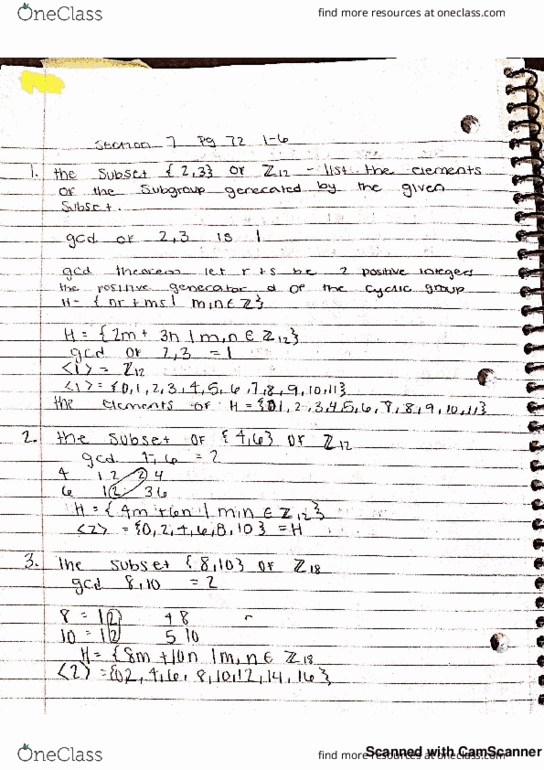 OneClass
find more resources at oneclass.com
Section 7 Pg 72 1-6
1. the subset {2,3} of ℤ12 - list the elements
of the subgroup generated by the given
subset.
gcd of 2,3 is 1
gcd theorem let r + s be 2 positive integers
the positive generator d of the cyclic group
H = {nr + ms | m,n ∈ ℤ}
H = {2m + 3n | m,n ∈ ℤ12}
gcd of 2,3 = 1
<1> = ℤ12
<1> = {0,1,2,3,4,5,6,7,8,9,10,11}
the elements of H = {0,1,2,3,4,5,6,7,8,9,10,11}
2. the subset of {4,6} of ℤ12
gcd 4,6 = 2
4 1 2 2 4
6 1 2 3 6
H = {4m + 6n | m,n ∈ ℤ12}
<2> = {0,2,4,6,8,10} = H
3. the subset {8,10} of ℤ18
gcd 8,10 = 2
8 = 1 2 4 8
10 = 1 2 5 10
H = {8m + 10n | m,n ∈ ℤ18
<2> = {0,2,4,6,8,10,12,14,16}
OneClass
find more resources at oneclass.com
Scanned with CamScanner